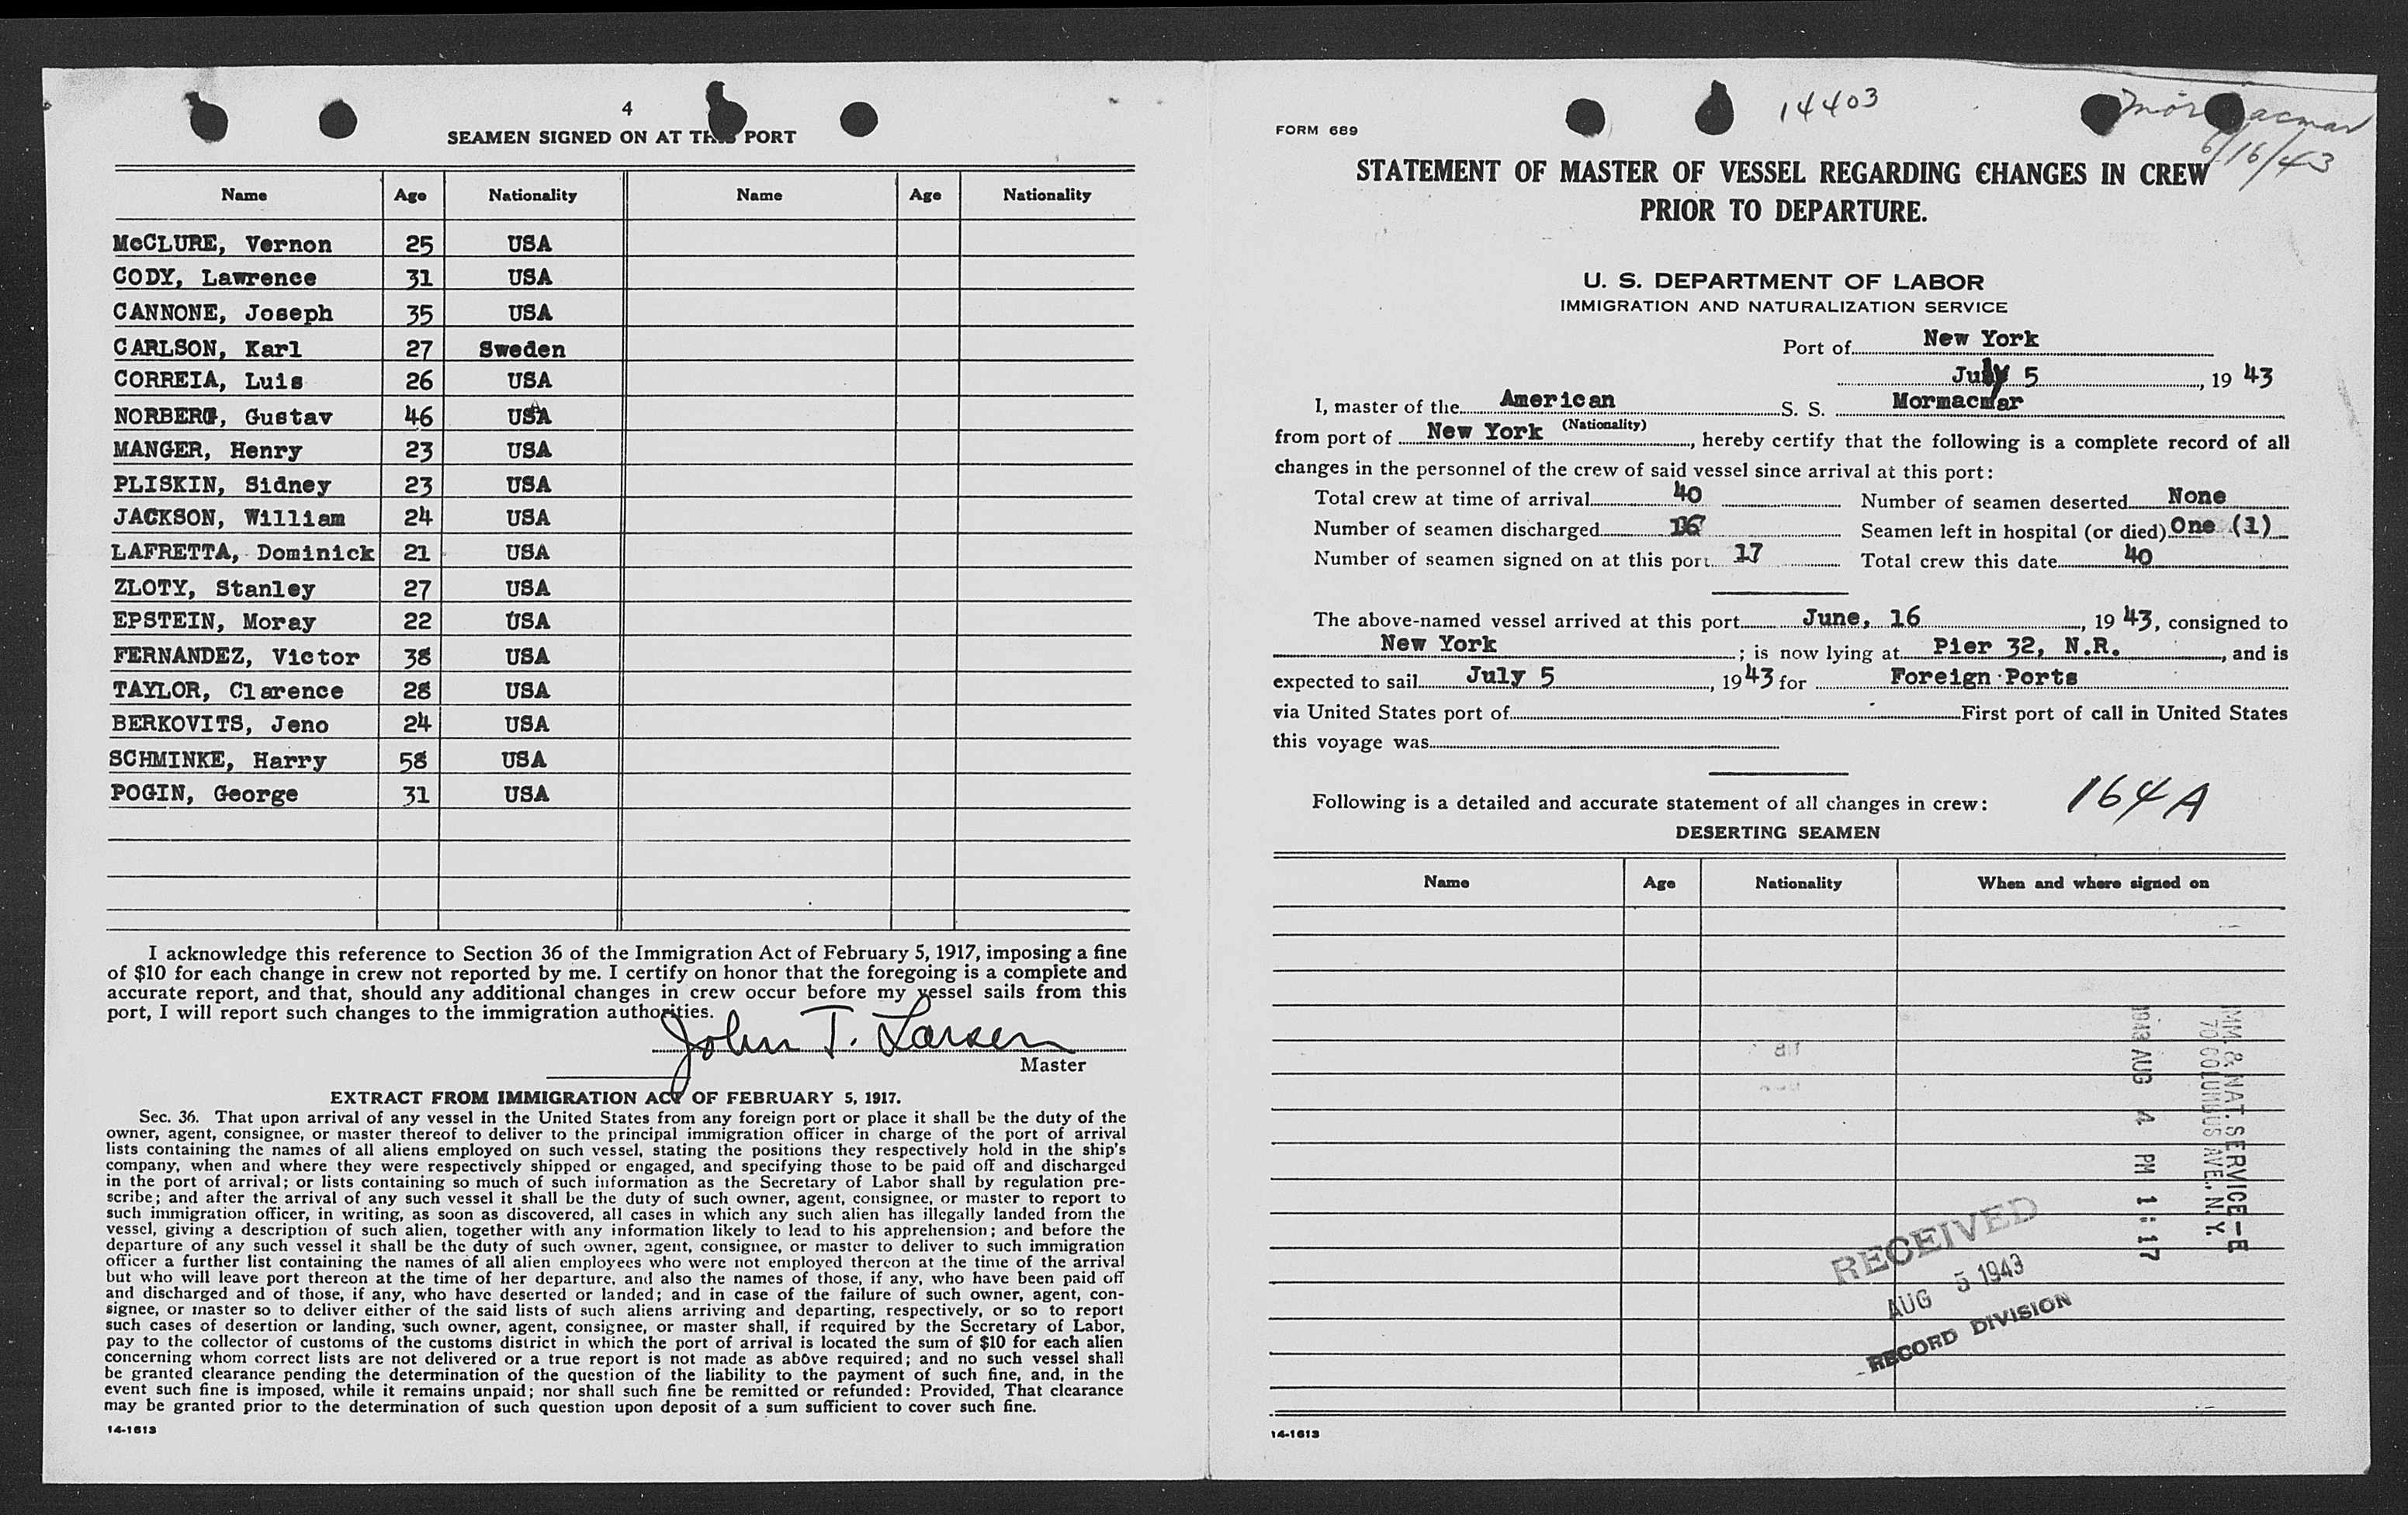 4
SEAMEN SIGNED ON AT THIS PORT
Name Age Nationality Name Age Nationality
McCLURE, Vernon 25 USA
CODY, Lawrence 31 USA
CANNONE, Joseph 35 USA
CARLSON, Karl 27 Sweden
CORREIA, Luis 26 USA
NORBERG, Gustav 46 USA
MANGER, Henry 23 USA
PLISKIN, Sidney 23 USA
JACKSON, William 24 USA
LAFRETTA, Dominick 21 USA
ZLOTY, Stanley 27 USA
EPSTEIN, Moray 22 USA
FERNANDEZ, Victor 38 USA
TAYLOR, Clarence 28 USA
BERKOVITS, Jeno 24 USA
SCHMINKE, Harry 58 USA
POGIN, George 31 USA
I acknowledge this reference to Section 36 of the Immigration Act of February 5, 1917, imposing a fine
of $10 for each change in crew not reported by me. I certify on honor that the foregoing is a complete and
accurate report, and that, should any additional changes in crew occur before my vessel sails from this
port, I will report such changes to the immigration authorities.
John T. Larsen
Master
EXTRACT FROM IMMIGRATION ACT OF FEBRUARY 5, 1917.
Sec. 36. That upon arrival of any vessel in the United States from any foreign port or place it shall be the duty of the
owner, agent, consignee, or master thereof to deliver to the principal immigration officer in charge of the port of arrival
lists containing the names of all aliens employed on such vessel, stating the positions they respectively hold in the ship's
company, when and where they were respectively shipped or engaged, and specifying those to be paid off and discharged
in the port of arrival; or lists containing so much of such information as the Secretary of Labor shall by regulation pre-
scribe; and after the arrival of any such vessel it shall be the duty of such owner, agent, consignee, or master to report to
such immigration officer, in writing, as soon as discovered, all cases in which any such alien has illegally landed from the
vessel, giving a description of such alien, together with any information likely to lead to his apprehension; and before the
departure of any such vessel it shall be the duty of such owner, agent, consignee, or master to deliver to such immigration
officer a further list containing the names of all alien employees who were not employed thereon at the time of the arrival
but who will leave port thereon at the time of her departure, and also the names of those, if any, who have been paid off
and discharged and of those, if any, who have deserted or landed; and in case of the failure of such owner, agent, con-
signee, or master so to deliver either of the said lists of such aliens arriving and departing, respectively, or so to report
such cases of desertion or landing, such owner, agent, consignee, or master shall, if required by the Secretary of Labor,
pay to the collector of customs of the customs district in which the port of arrival is located the sum of $10 for each alien
concerning whom correct lists are not delivered or a true report is not made as above required; and no such vessel shall
be granted clearance pending the determination of the question of the liability to the payment of such fine, and, in the
event such fine is imposed, while it remains unpaid; nor shall such fine be remitted or refunded: Provided, That clearance
may be granted prior to the determination of such question upon deposit of a sum sufficient to cover such fine.
14-1613
14403
Mormacmar
6/16/43
FORM 689
STATEMENT OF MASTER OF VESSEL REGARDING CHANGES IN CREW
PRIOR TO DEPARTURE.
U. S. DEPARTMENT OF LABOR
IMMIGRATION AND NATURALIZATION SERVICE
Port of New York
July 5, 19 43
I, master of the American S. S. Mormacmar
(Nationality)
from port of New York, hereby certify that the following is a complete record of all
changes in the personnel of the crew of said vessel since arrival at this port:
Total crew at time of arrival 40 Number of seamen deserted None
Number of seamen discharged 16 Seamen left in hospital (or died) One (1)
Number of seamen signed on at this port 17 Total crew this date 40
The above-named vessel arrived at this port June, 16, 19 43, consigned to
New York; is now lying at Pier 32, N.R., and is
expected to sail July 5, 19 43 for Foreign Ports
via United States port of First port of call in United States
this voyage was
Following is a detailed and accurate statement of all changes in crew:
164A
DESERTING SEAMEN
Name Age Nationality When and where signed on
IMM. & NAT. SERVICE-E
70 COLUMBUS AVE., N.Y.
1943 AUG 4 PM 1:17
RECEIVED
AUG 5 1943
RECORD DIVISION
14-1613